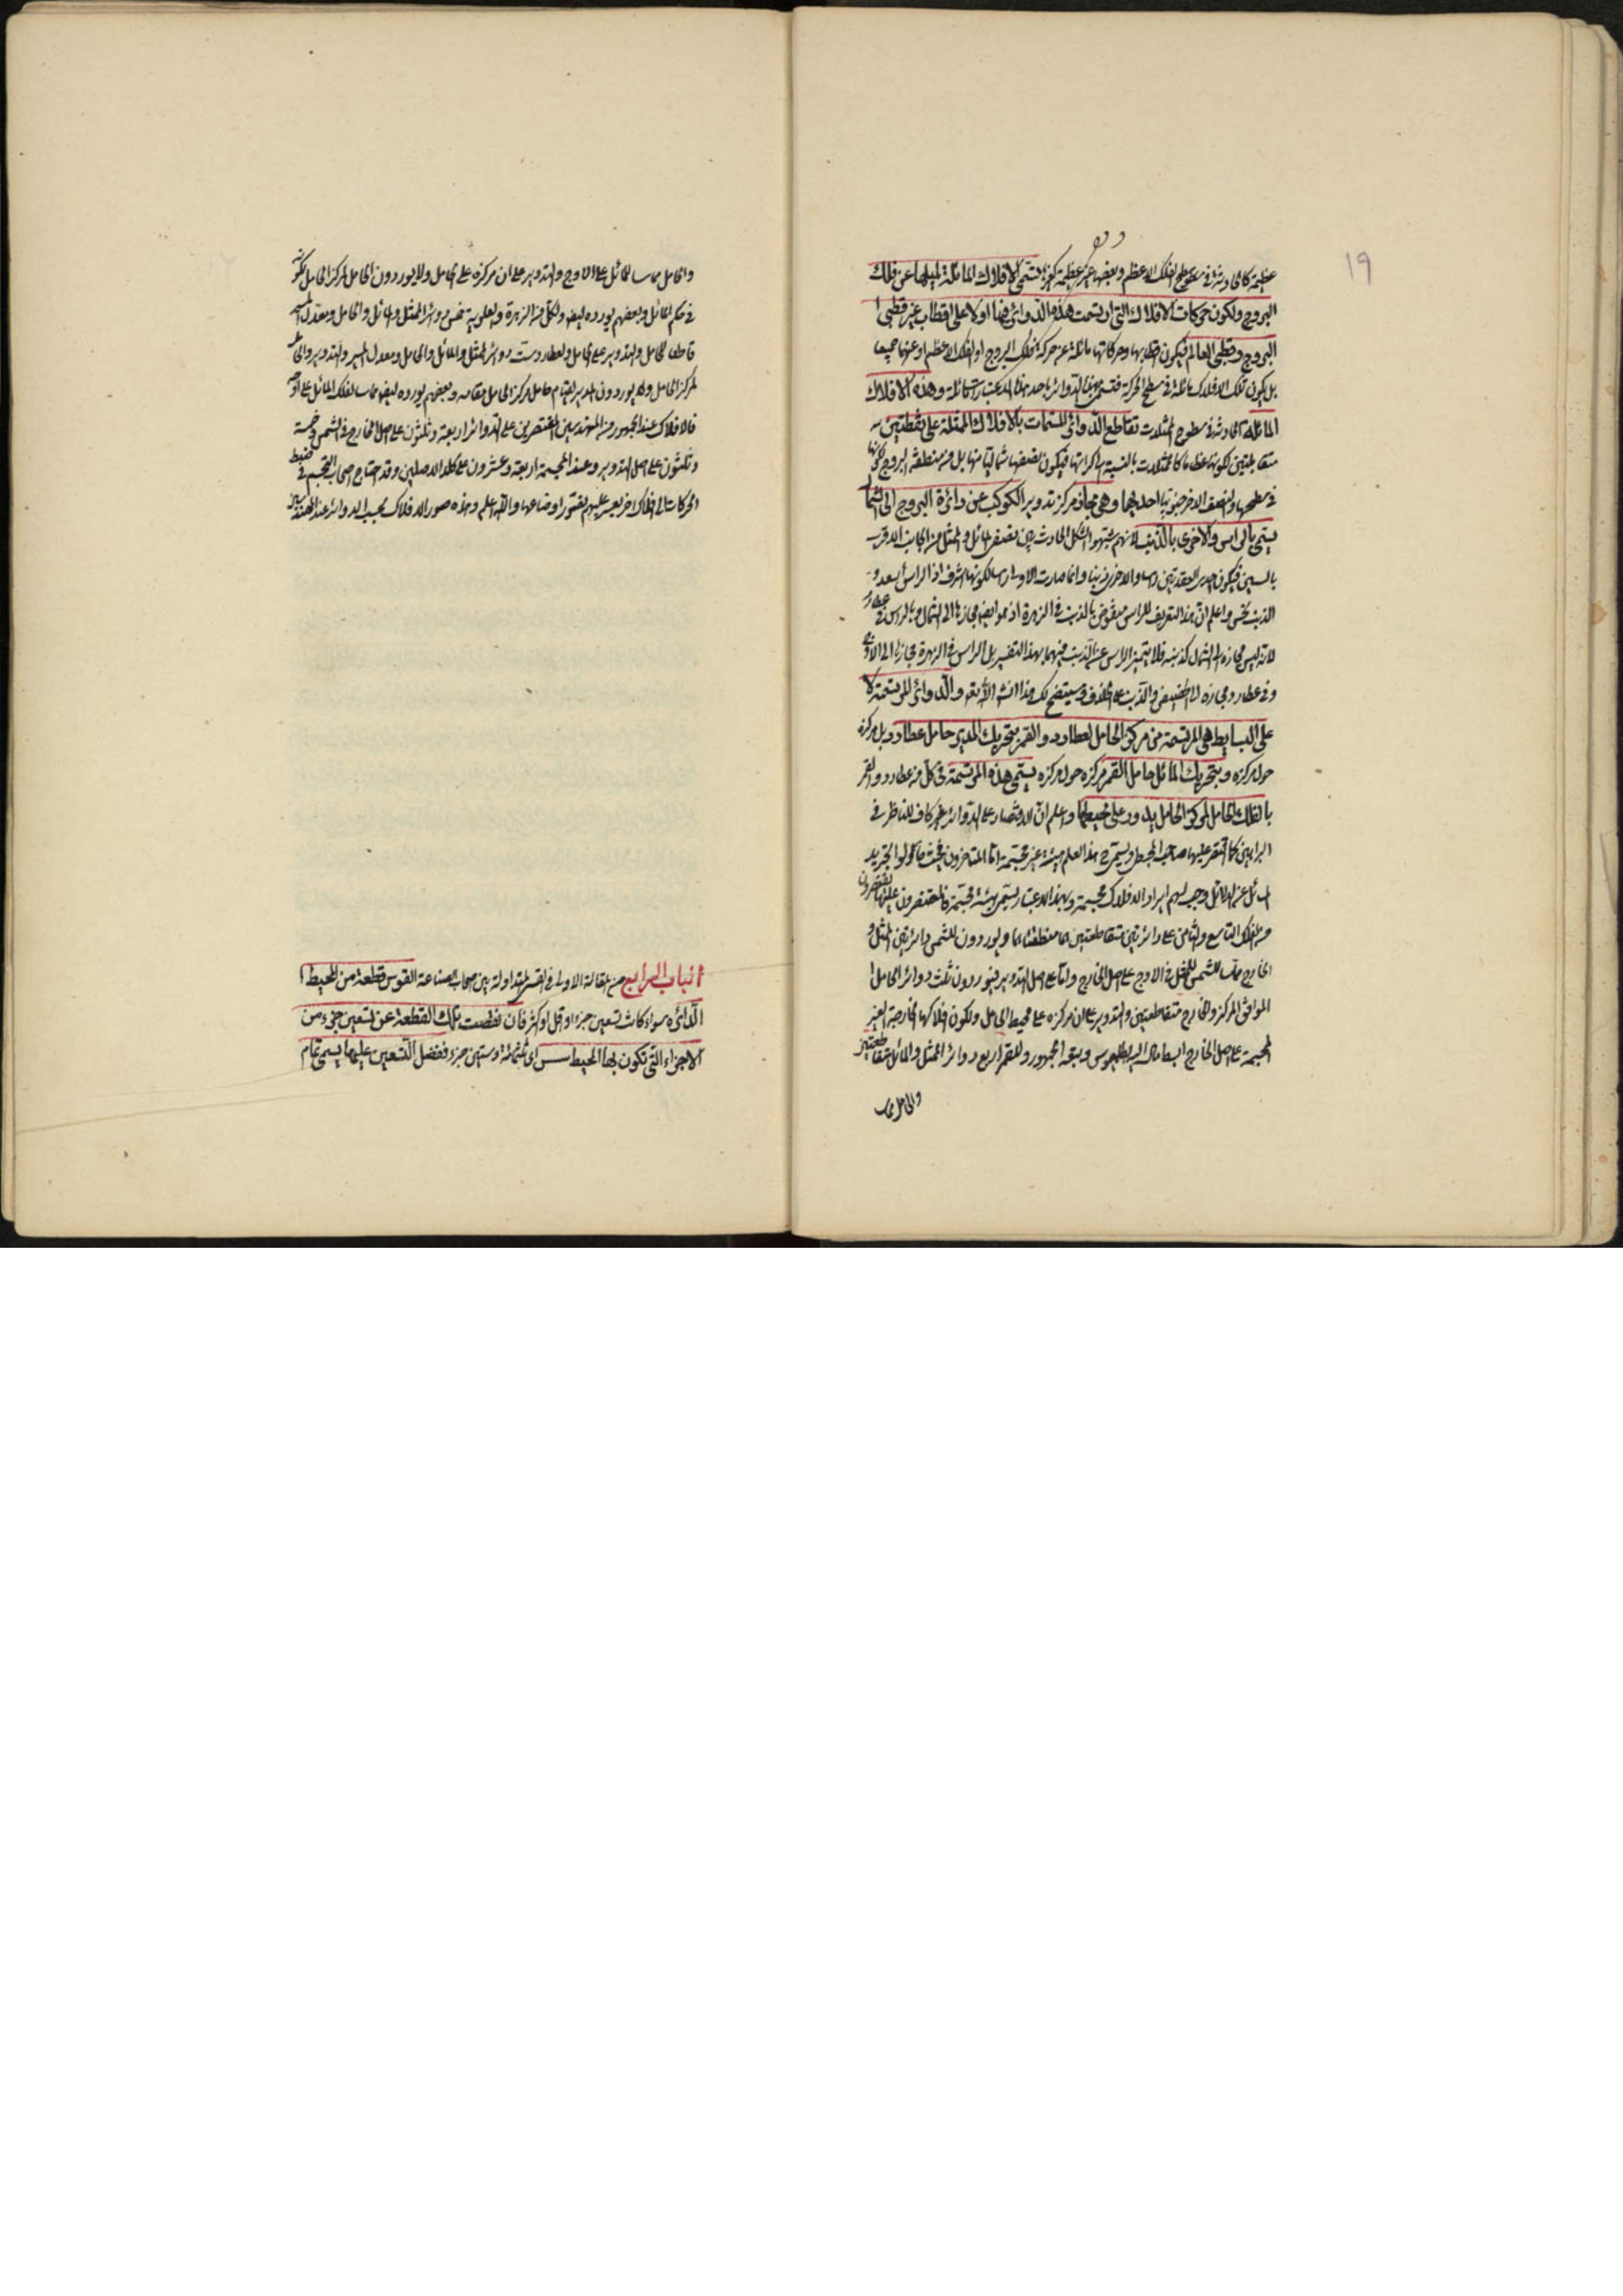 ١٩
عظيمة كالحادثة في سطوح الفلك الاعظم وبعضها غير عظيمة كغيرها فتسمى الافلاك المائلة لميلها عن فلك
البروج ولكون حركات الافلاك التي ارتسمت هذه الدوائر فيها اولا على اقطاب غير قطبي
البروج وقطبي العالم فيكون اقطابها وحركاتها مائلة عن حركة فلك البروج او الفلك الاعظم او عنهما جميعا
بل يكون تلك الافلاك مائلة في سطح الحركة فتسمى هذه الدوائر باحد هذه الاعتبارات مائلة وهذه الافلاك
المائلة الحادثة في سطوح الممثلات تقاطع الدوائر المسمات بالافلاك الممثلة على نقطتين
متقابلتين لكونها عظاما كالممثلات بالنسبة الى اكراتها فيكون نصفها شماليا منها بل من منطقة البروج لكونها
في سطحها والنصف الاخر جنوبيا احديهما وهي مجاز مركز تدوير الكوكب عن دائرة البروج الى الشمال
يسمى بالراس والاخرى بالذنب لانهم شبهوا الشكل الحادث بين نصفي المائل والممثل من الجانب الاقرب
بالتنين فيكون احدى العقدتين راسا والاخرى ذنبا وانما صارت الاولى راسا لكونها اشرف اذ الراس اسعد و
الذنب نحس واعلم ان هذا التعريف للراس منقوض بالذنب في الزهرة اذ هو ايضا مجازها الى الشمال وبالراس في عطارد
لانه ليس مجازه الى الشمال كذنبه فلا يتميز الراس عن الذنب فيهما بهذا التفسير بل الراس في الزهرة مجازها الى الاوج
وفي عطارد مجازه الى الحضيض والذنب على الخلاف وسيتضح لك هذا ان شاء الله تعالى والدوائر المرتسمة لا
على البسايط هي المرتسمة من مركز الحامل لعطارد والقمر بتحريك المدير حامل عطارد بل مركزه
حول مركزه وبتحريك المائل حامل القمر مركزه حول مركزه يسمى هذه المرتسمة في كل من عطارد والقمر
بالفلك الحامل لمركز الحامل يدور على محيطها واعلم ان الاقتصار على الدوائر غير كاف للناظر في
البراهين كما اقتصر عليها صاحب المجسطي ويسمى ح هذا العلم هيئة غير مجسمة اما المتاخرون فحيث حاولوا تجريد
المسائل عن الدلائل وجب لهم ايراد الافلاك مجسمة وبهذا الاعتبار يسمى هيئة مجسمة فالمقتصرون عليها يقتصرون
من الفلك التاسع والثامن على دائرتين متقاطعتين هما منطقتاهما ويوردون للشمس دائرتين الممثل و
الخارج مماس للممثل في الاوج على اصل الخارج واما على اصل التدوير فيوردون ثلث دوائر الحامل
الموافق المركز والخارج متقاطعتين والتدوير على ان مركزه على محيط الحامل ولكون افلاكها الخارجة الغير
المجسمة على اصل الخارج ابسط مال اليه بطلميوس وتبعه الجمهور وللقمر اربع دوائر الممثل والمائل متقاطعتين
والحامل مماس
والحامل مماس للمائل على الاوج والتدوير على ان مركزه على الحامل ولا يوردون الحامل لمركز الحامل لكونه
في حكم المائل وبعضهم يورده ايضا ولكل من الزهرة والعلوية خمس دوائر الممثل والمائل والحامل ومعدل المسير
قاطعا للحامل والتدوير على الحامل ولعطارد ست دوائر الممثل والمائل والحامل ومعدل المسير والتدوير والحامل
لمركز الحامل ولا يوردون المدير لقيام حامل مركز الحامل مقامه وبعضهم يورده ايضا مماسا لفلك المائل على اوجه
فالافلاك عند الجمهور من المهندسين المقتصرين على الدوائر اربعة وثلثون على اصل الخارج في الشمس وخمسة
وثلثون على اصل التدوير وعند المجسمة اربعة وعشرون على كلا الاصلين وقد احتاج اصحاب التجسم في ضبط
الحركات الى افلاك اخر يعسر عليهم تصور اوضاعها والله اعلم وهذه صور الافلاك بحسب الدوائر عند المهندسين
الباب الرابع من المقالة الاولى في القسي المتداولة بين اصحاب الصناعة القوس قطعة من المحيط
الدائرة سواء كانت تسعين جزءا او اقل او اكثر فان نقصت تلك القطعة عن تسعين جزء من
الاجزاء التي تكون بها المحيط سس اي ثلثمائة وستين جزء ففضل التسعين عليها يسمى تمام